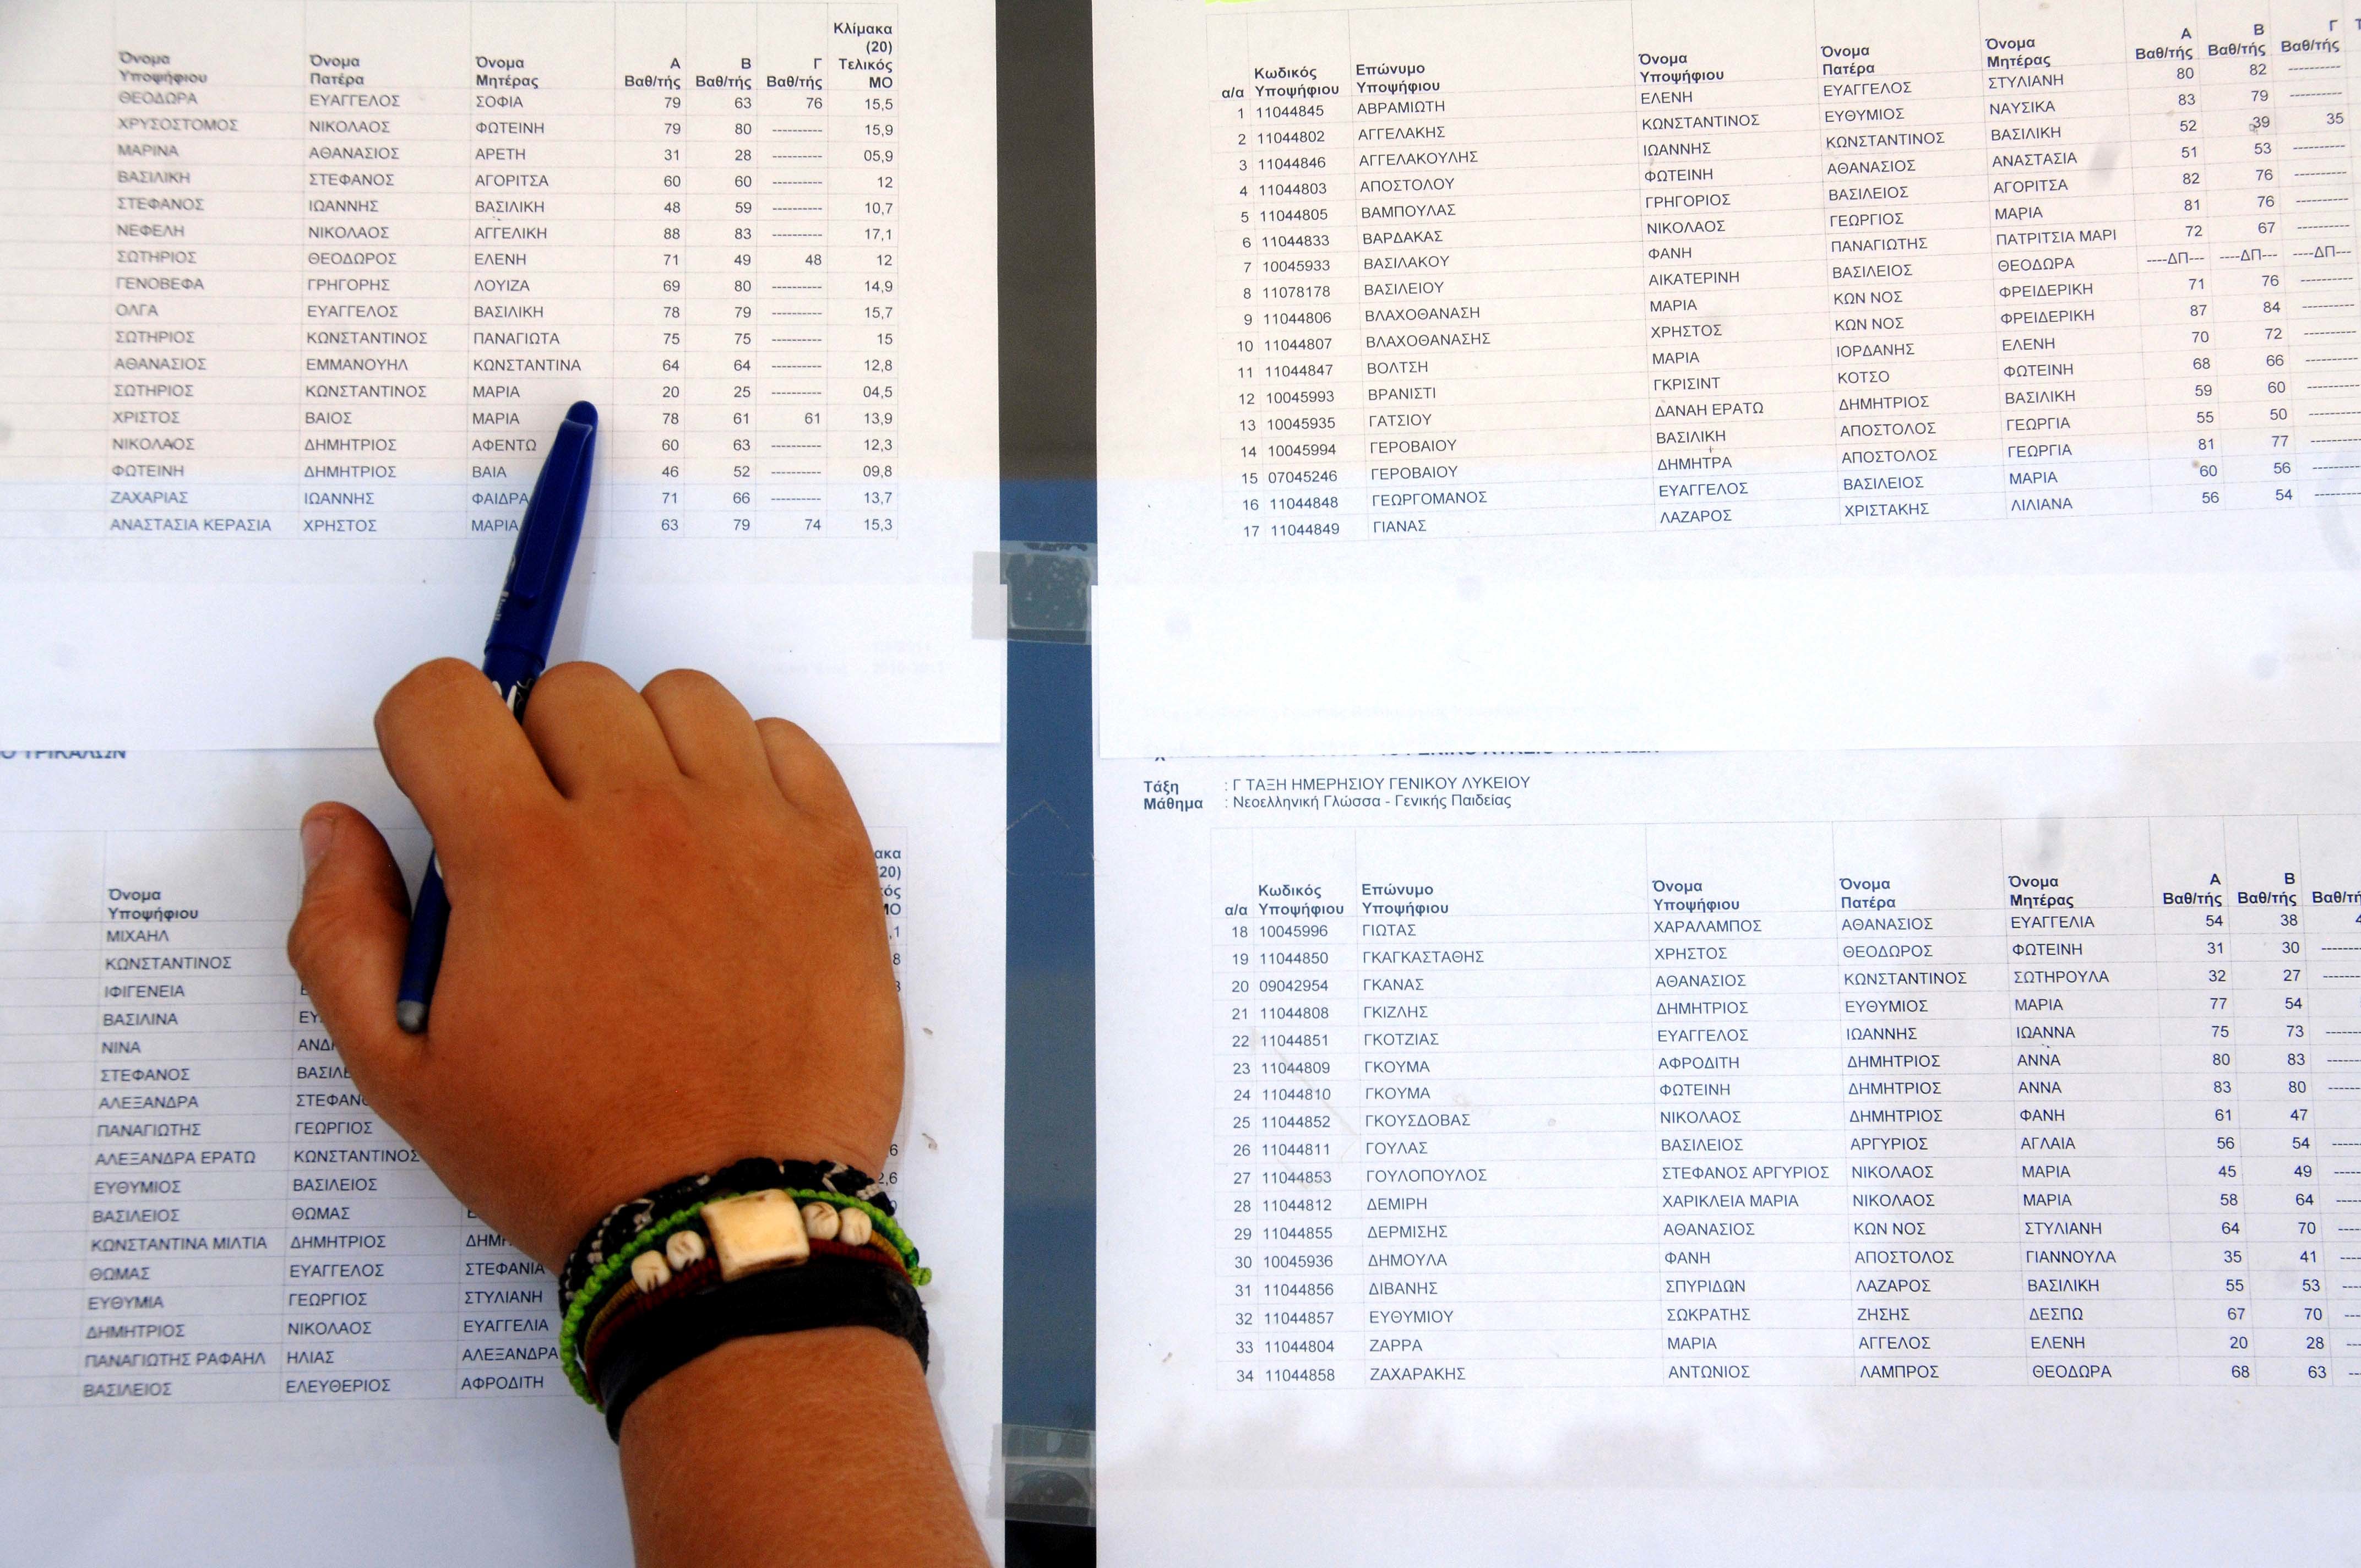 Όνομα Υποψήφιου Όνομα Πατέρα Όνομα Μητέρας Α Βαθ/τής Β Βαθ/τής Γ Βαθ/τής Κλίμακα (20) Τελικός ΜΟ
ΘΕΟΔΩΡΑ ΕΥΑΓΓΕΛΟΣ ΣΟΦΙΑ 79 63 76 15,5
ΧΡΥΣΟΣΤΟΜΟΣ ΝΙΚΟΛΑΟΣ ΦΩΤΕΙΝΗ 79 80 ---------- 15,9
ΜΑΡΙΝΑ ΑΘΑΝΑΣΙΟΣ ΑΡΕΤΗ 31 28 ---------- 05,9
ΒΑΣΙΛΙΚΗ ΣΤΕΦΑΝΟΣ ΑΓΟΡΙΤΣΑ 60 60 ---------- 12
ΣΤΕΦΑΝΟΣ ΙΩΑΝΝΗΣ ΒΑΣΙΛΙΚΗ 48 59 ---------- 10,7
ΝΕΦΕΛΗ ΝΙΚΟΛΑΟΣ ΑΓΓΕΛΙΚΗ 88 83 ---------- 17,1
ΣΩΤΗΡΙΟΣ ΘΕΟΔΩΡΟΣ ΕΛΕΝΗ 71 49 48 12
ΓΕΝΟΒΕΦΑ ΓΡΗΓΟΡΗΣ ΛΟΥΙΖΑ 69 80 ---------- 14,9
ΟΛΓΑ ΕΥΑΓΓΕΛΟΣ ΒΑΣΙΛΙΚΗ 78 79 ---------- 15,7
ΣΩΤΗΡΙΟΣ ΚΩΝΣΤΑΝΤΙΝΟΣ ΠΑΝΑΓΙΩΤΑ 75 75 ---------- 15
ΑΘΑΝΑΣΙΟΣ ΕΜΜΑΝΟΥΗΛ ΚΩΝΣΤΑΝΤΙΝΑ 64 64 ---------- 12,8
ΣΩΤΗΡΙΟΣ ΚΩΝΣΤΑΝΤΙΝΟΣ ΜΑΡΙΑ 20 25 ---------- 04,5
ΧΡΙΣΤΟΣ ΒΑΙΟΣ ΜΑΡΙΑ 78 61 61 13,9
ΝΙΚΟΛΑΟΣ ΔΗΜΗΤΡΙΟΣ ΑΦΕΝΤΩ 60 63 ---------- 12,3
ΦΩΤΕΙΝΗ ΔΗΜΗΤΡΙΟΣ ΒΑΙΑ 46 52 ---------- 09,8
ΖΑΧΑΡΙΑΣ ΙΩΑΝΝΗΣ ΦΑΙΔΡΑ 71 66 ---------- 13,7
ΑΝΑΣΤΑΣΙΑ ΚΕΡΑΣΙΑ ΧΡΗΣΤΟΣ ΜΑΡΙΑ 63 79 74 15,3
ΤΡΙΚΑΛΩΝ
Όνομα Υποψήφιου
ΜΙΧΑΗΛ
ΚΩΝΣΤΑΝΤΙΝΟΣ
ΙΦΙΓΕΝΕΙΑ
ΒΑΣΙΛΙΝΑ
ΝΙΝΑ
ΣΤΕΦΑΝΟΣ
ΑΛΕΞΑΝΔΡΑ
ΠΑΝΑΓΙΩΤΗΣ ΓΕΩΡΓΙΟΣ
ΑΛΕΞΑΝΔΡΑ ΕΡΑΤΩ ΚΩΝΣΤΑΝΤΙΝΟΣ
ΕΥΘΥΜΙΟΣ ΒΑΣΙΛΕΙΟΣ
ΒΑΣΙΛΕΙΟΣ ΘΩΜΑΣ
ΚΩΝΣΤΑΝΤΙΝΑ ΜΙΛΤΙΑ ΔΗΜΗΤΡΙΟΣ
ΘΩΜΑΣ ΕΥΑΓΓΕΛΟΣ ΣΤΕΦΑΝΙΑ
ΕΥΘΥΜΙΑ ΓΕΩΡΓΙΟΣ ΣΤΥΛΙΑΝΗ
ΔΗΜΗΤΡΙΟΣ ΝΙΚΟΛΑΟΣ ΕΥΑΓΓΕΛΙΑ
ΠΑΝΑΓΙΩΤΗΣ ΡΑΦΑΗΛ ΗΛΙΑΣ ΑΛΕΞΑΝΔΡΑ
ΒΑΣΙΛΕΙΟΣ ΕΛΕΥΘΕΡΙΟΣ ΑΦΡΟΔΙΤΗ
α/α Κωδικός Υποψήφιου Επώνυμο Υποψήφιου Όνομα Υποψήφιου Όνομα Πατέρα Όνομα Μητέρας Α Βαθ/τής Β Βαθ/τής Γ Βαθ/τής
1 11044845 ΑΒΡΑΜΙΩΤΗ ΕΛΕΝΗ ΕΥΑΓΓΕΛΟΣ ΣΤΥΛΙΑΝΗ 80 82 ----------
2 11044802 ΑΓΓΕΛΑΚΗΣ ΚΩΝΣΤΑΝΤΙΝΟΣ ΕΥΘΥΜΙΟΣ ΝΑΥΣΙΚΑ 83 79 ----------
3 11044846 ΑΓΓΕΛΑΚΟΥΛΗΣ ΙΩΑΝΝΗΣ ΚΩΝΣΤΑΝΤΙΝΟΣ ΒΑΣΙΛΙΚΗ 52 39 35
4 11044803 ΑΠΟΣΤΟΛΟΥ ΦΩΤΕΙΝΗ ΑΘΑΝΑΣΙΟΣ ΑΝΑΣΤΑΣΙΑ 51 53 ----------
5 11044805 ΒΑΜΠΟΥΛΑΣ ΓΡΗΓΟΡΙΟΣ ΒΑΣΙΛΕΙΟΣ ΑΓΟΡΙΤΣΑ 82 76 ----------
6 11044833 ΒΑΡΔΑΚΑΣ ΝΙΚΟΛΑΟΣ ΓΕΩΡΓΙΟΣ ΜΑΡΙΑ 81 76 ----------
7 10045933 ΒΑΣΙΛΑΚΟΥ ΦΑΝΗ ΠΑΝΑΓΙΩΤΗΣ ΠΑΤΡΙΤΣΙΑ ΜΑΡΙ 72 67 ----------
8 11078178 ΒΑΣΙΛΕΙΟΥ ΑΙΚΑΤΕΡΙΝΗ ΒΑΣΙΛΕΙΟΣ ΘΕΟΔΩΡΑ ----ΔΠ--- ----ΔΠ--- ----ΔΠ---
9 11044806 ΒΛΑΧΟΘΑΝΑΣΗ ΜΑΡΙΑ ΚΩΝ ΝΟΣ ΦΡΕΙΔΕΡΙΚΗ 71 76 ----------
10 11044807 ΒΛΑΧΟΘΑΝΑΣΗΣ ΧΡΗΣΤΟΣ ΚΩΝ ΝΟΣ ΦΡΕΙΔΕΡΙΚΗ 87 84 ----------
11 11044847 ΒΟΛΤΣΗ ΜΑΡΙΑ ΙΟΡΔΑΝΗΣ ΕΛΕΝΗ 70 72 ----------
12 10045993 ΒΡΑΝΙΣΤΙ ΓΚΡΙΣΙΝΤ ΚΟΤΣΟ ΦΩΤΕΙΝΗ 68 66 ----------
13 10045935 ΓΑΤΣΙΟΥ ΔΑΝΑΗ ΕΡΑΤΩ ΔΗΜΗΤΡΙΟΣ ΒΑΣΙΛΙΚΗ 59 60 ----------
14 10045994 ΓΕΡΟΒΑΙΟΥ ΒΑΣΙΛΙΚΗ ΑΠΟΣΤΟΛΟΣ ΓΕΩΡΓΙΑ 55 50 ----------
15 07045246 ΓΕΡΟΒΑΙΟΥ ΔΗΜΗΤΡΑ ΑΠΟΣΤΟΛΟΣ ΓΕΩΡΓΙΑ 81 77 ----------
16 11044848 ΓΕΩΡΓΟΜΑΝΟΣ ΕΥΑΓΓΕΛΟΣ ΒΑΣΙΛΕΙΟΣ ΜΑΡΙΑ 60 56 ----------
17 11044849 ΓΙΑΝΑΣ ΛΑΖΑΡΟΣ ΧΡΙΣΤΑΚΗΣ ΛΙΛΙΑΝΑ 56 54 ----------
Τάξη : Γ ΤΑΞΗ ΗΜΕΡΗΣΙΟΥ ΓΕΝΙΚΟΥ ΛΥΚΕΙΟΥ
Μάθημα : Νεοελληνική Γλώσσα - Γενικής Παιδείας
α/α Κωδικός Υποψήφιου Επώνυμο Υποψήφιου Όνομα Υποψήφιου Όνομα Πατέρα Όνομα Μητέρας Α Βαθ/τής Β Βαθ/τής
18 10045996 ΓΙΩΤΑΣ ΧΑΡΑΛΑΜΠΟΣ ΑΘΑΝΑΣΙΟΣ ΕΥΑΓΓΕΛΙΑ 54 38
19 11044850 ΓΚΑΓΚΑΣΤΑΘΗΣ ΧΡΗΣΤΟΣ ΘΕΟΔΩΡΟΣ ΦΩΤΕΙΝΗ 31 30
20 09042954 ΓΚΑΝΑΣ ΑΘΑΝΑΣΙΟΣ ΚΩΝΣΤΑΝΤΙΝΟΣ ΣΩΤΗΡΟΥΛΑ 32 27
21 11044808 ΓΚΙΖΛΗΣ ΔΗΜΗΤΡΙΟΣ ΕΥΘΥΜΙΟΣ ΜΑΡΙΑ 77 54
22 11044851 ΓΚΟΤΖΙΑΣ ΕΥΑΓΓΕΛΟΣ ΙΩΑΝΝΗΣ ΙΩΑΝΝΑ 75 73
23 11044809 ΓΚΟΥΜΑ ΑΦΡΟΔΙΤΗ ΔΗΜΗΤΡΙΟΣ ΑΝΝΑ 80 83
24 11044810 ΓΚΟΥΜΑ ΦΩΤΕΙΝΗ ΔΗΜΗΤΡΙΟΣ ΑΝΝΑ 83 80
25 11044852 ΓΚΟΥΣΔΟΒΑΣ ΝΙΚΟΛΑΟΣ ΔΗΜΗΤΡΙΟΣ ΦΑΝΗ 61 47
26 11044811 ΓΟΥΛΑΣ ΒΑΣΙΛΕΙΟΣ ΑΡΓΥΡΙΟΣ ΑΓΛΑΙΑ 56 54
27 11044853 ΓΟΥΛΟΠΟΥΛΟΣ ΣΤΕΦΑΝΟΣ ΑΡΓΥΡΙΟΣ ΝΙΚΟΛΑΟΣ ΜΑΡΙΑ 45 49
28 11044812 ΔΕΜΙΡΗ ΧΑΡΙΚΛΕΙΑ ΜΑΡΙΑ ΝΙΚΟΛΑΟΣ ΜΑΡΙΑ 58 64
29 11044855 ΔΕΡΜΙΣΗΣ ΑΘΑΝΑΣΙΟΣ ΚΩΝ ΝΟΣ ΣΤΥΛΙΑΝΗ 64 70
30 10045936 ΔΗΜΟΥΛΑ ΦΑΝΗ ΑΠΟΣΤΟΛΟΣ ΓΙΑΝΝΟΥΛΑ 35 41
31 11044856 ΔΙΒΑΝΗΣ ΣΠΥΡΙΔΩΝ ΛΑΖΑΡΟΣ ΒΑΣΙΛΙΚΗ 55 53
32 11044857 ΕΥΘΥΜΙΟΥ ΣΩΚΡΑΤΗΣ ΖΗΣΗΣ ΔΕΣΠΩ 67 70
33 11044804 ΖΑΡΡΑ ΜΑΡΙΑ ΑΓΓΕΛΟΣ ΕΛΕΝΗ 20 28
34 11044858 ΖΑΧΑΡΑΚΗΣ ΑΝΤΩΝΙΟΣ ΛΑΜΠΡΟΣ ΘΕΟΔΩΡΑ 68 63